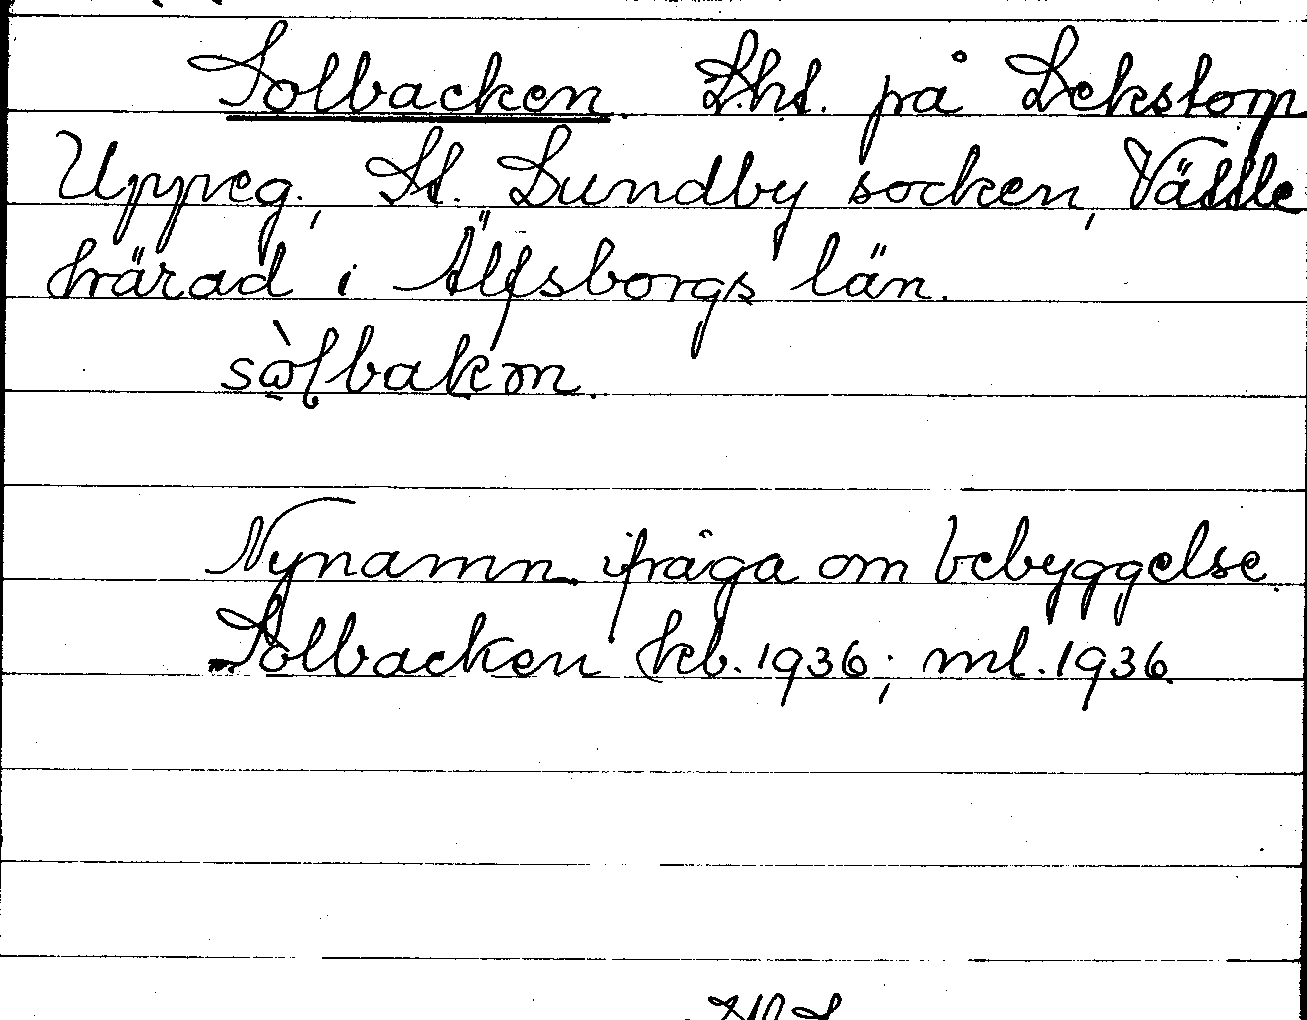 Solbacken. Lht. på Lekstorp
Uppeg., St. Lundby socken, Vättle
härad i Älfsborgs län.
Nynamn ifråga om bebyggelse.
Solbacken kb. 1936; ml. 1936.